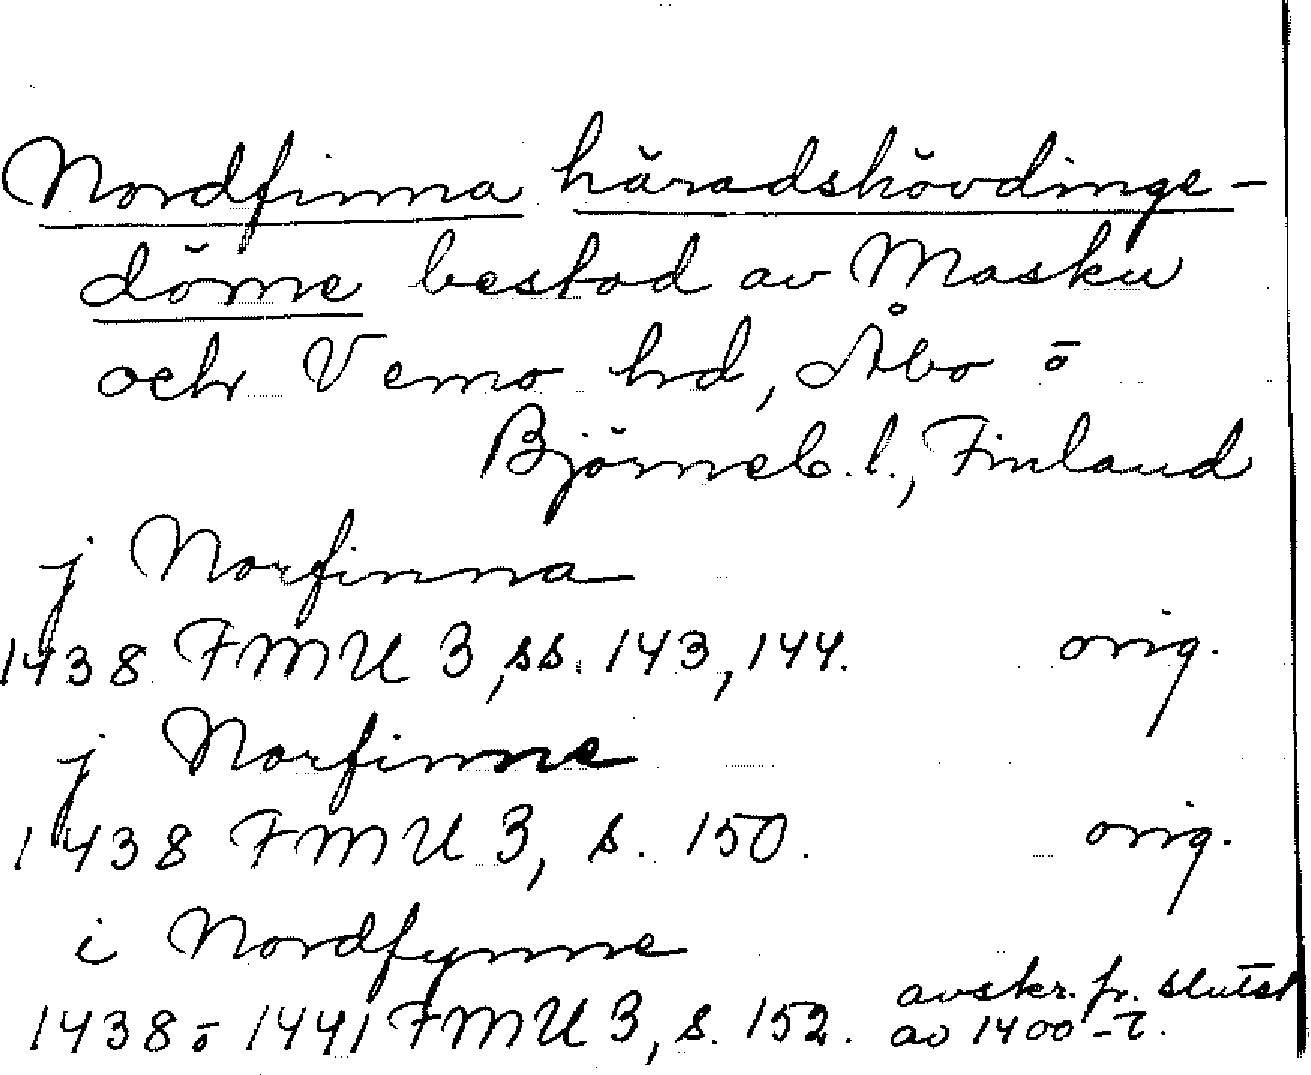 Nordfinna häradshövdinge-
döme bestod av Masku
och Vemo hd, Åbo o
Björneb. l., Finland
j Norfinna
1438 FMU 3, ss. 143, 144. orig.
j Norfinne
1438 FMU 3, s. 150. orig.
i Nordfynne
1438 o 1441 FMU 3, s. 152. avskr. fr. slutet
av 1400-t.